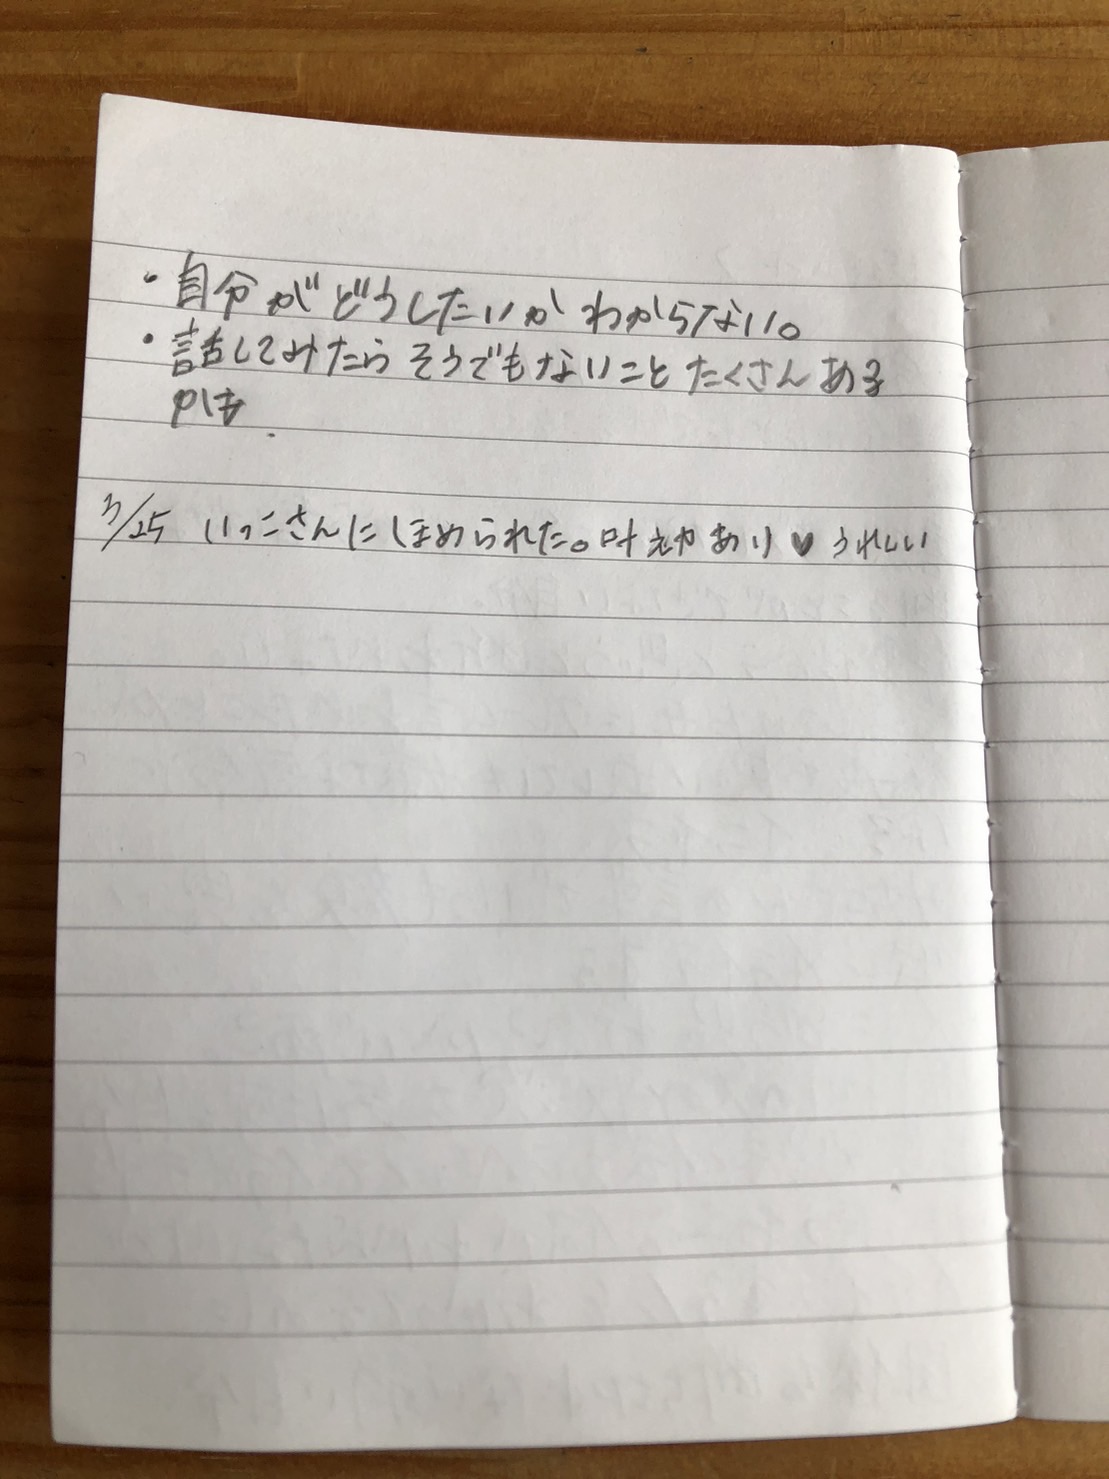 ・自分がどうしたいかわからない。
・話してみたらそうでもないことたくさんある
かも
3/25 いっこさんにほめられた。叶えやあり♥うれしい